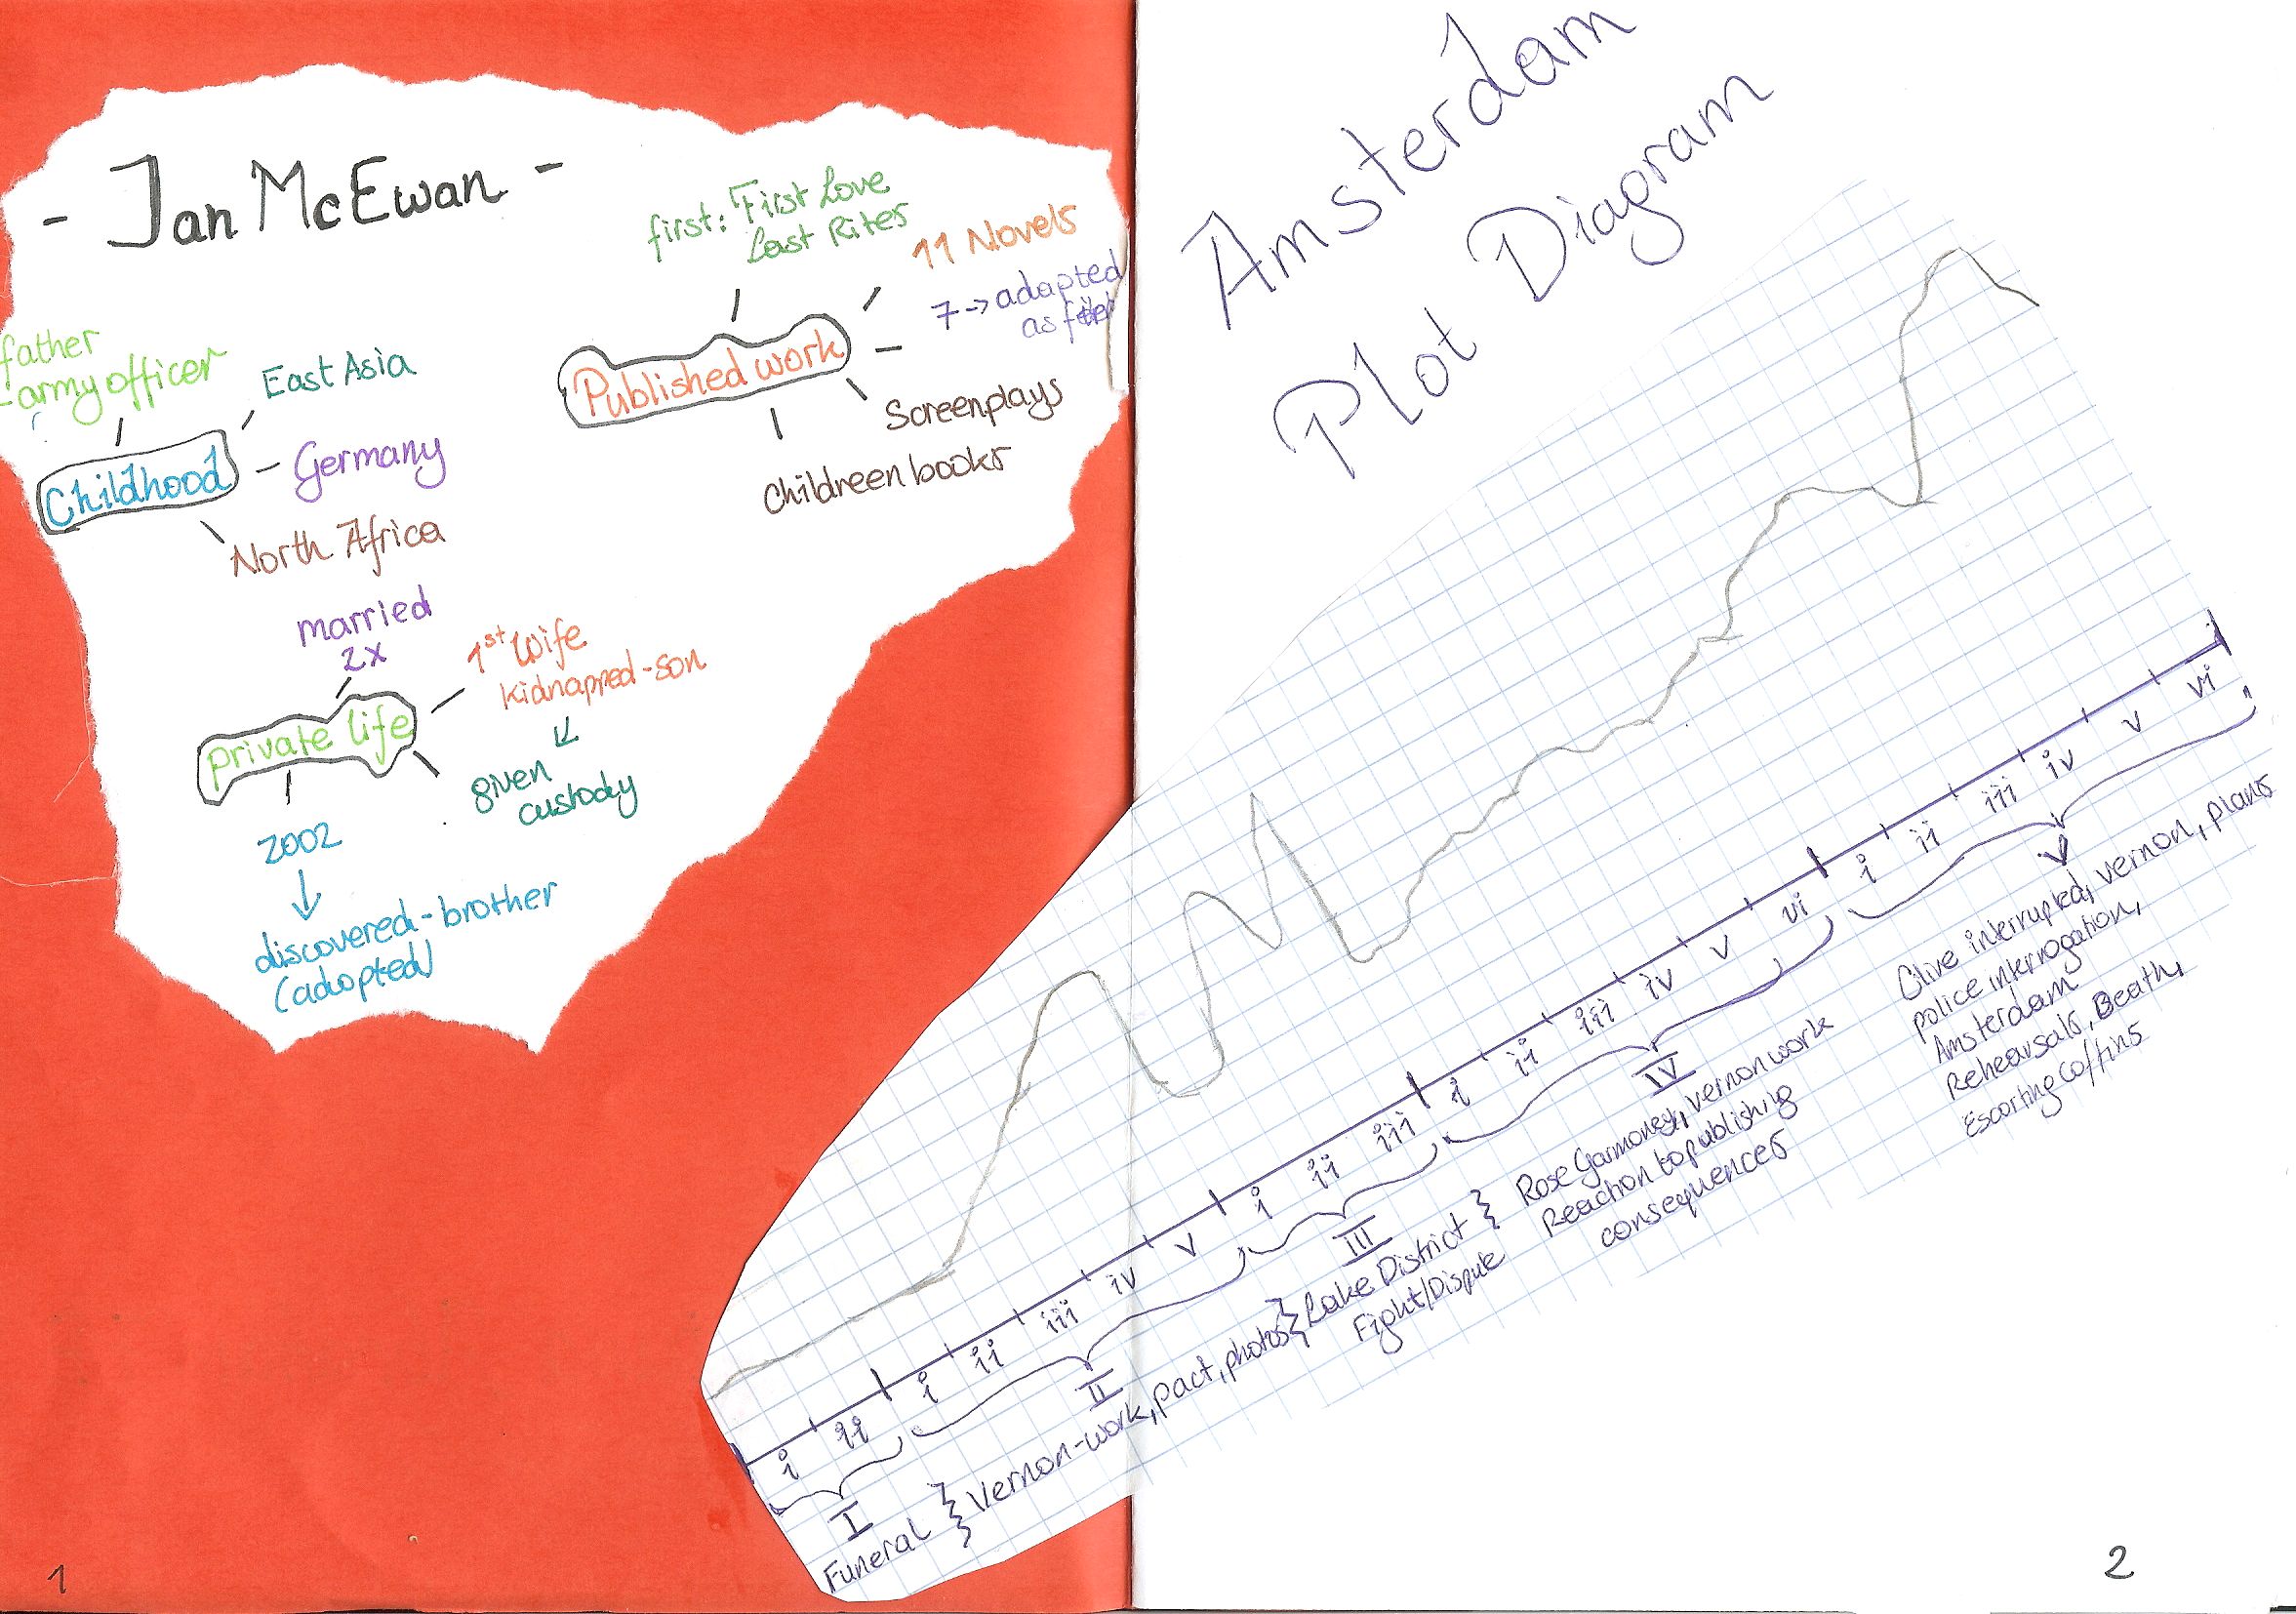 - Ian McEwan -
father
- army officer
East Asia
Childhood
Germany
North Africa
first: First Love
Last Rites
11 Novels
7 -> adapted
as
Published work
Screenplays
Childreen books
married
2x
1st Wife
kidnapped-son
private life
given
custody
2002
discovered-brother
(adopted)
1
Amsterdam
Plot Diagram
i ii i ii iii iv v i ii iii i ii iii iv v vi i ii iii iv v vi
I
II
III
IV
V
Funeral
Vernon-work, pact, photos
Lake District
Fight/Dispute
Rose Garmoney, Vernon work
Reaction to publishing
consequences
Clive interrupted, Vernon, plans
police interrogation,
Amsterdam
Rehearsals, Death,
Escorting Coffins
2